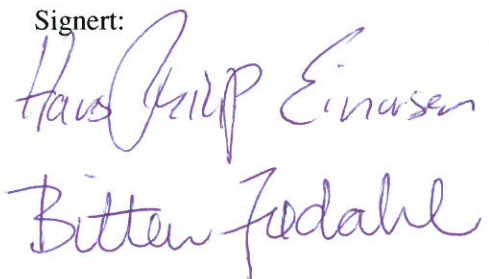 Signert:
Hans Philip Einarsen
Bitten Fredahl